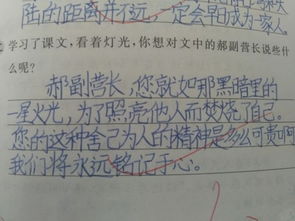 陆的距离并不远,一定会早日成为一家人。
学习了课文,看着灯光,你想对文中的郝副营长说些什
么呢?
郝副营长,您就如那黑暗里的
一星火光,为了照亮他人而焚烧了自己。
您的这种舍己为人的精神是多么可贵啊
我们将永远铭记于心。